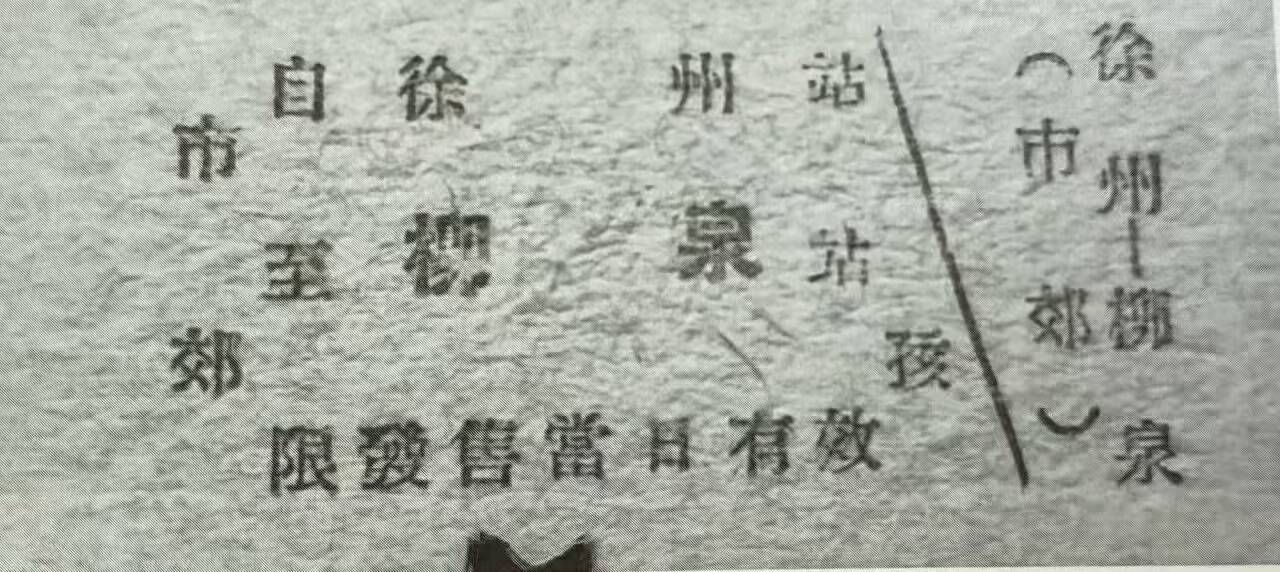 自徐州站
至柳泉站
市郊
孩
限發售當日有效
徐州—柳泉
（市郊）